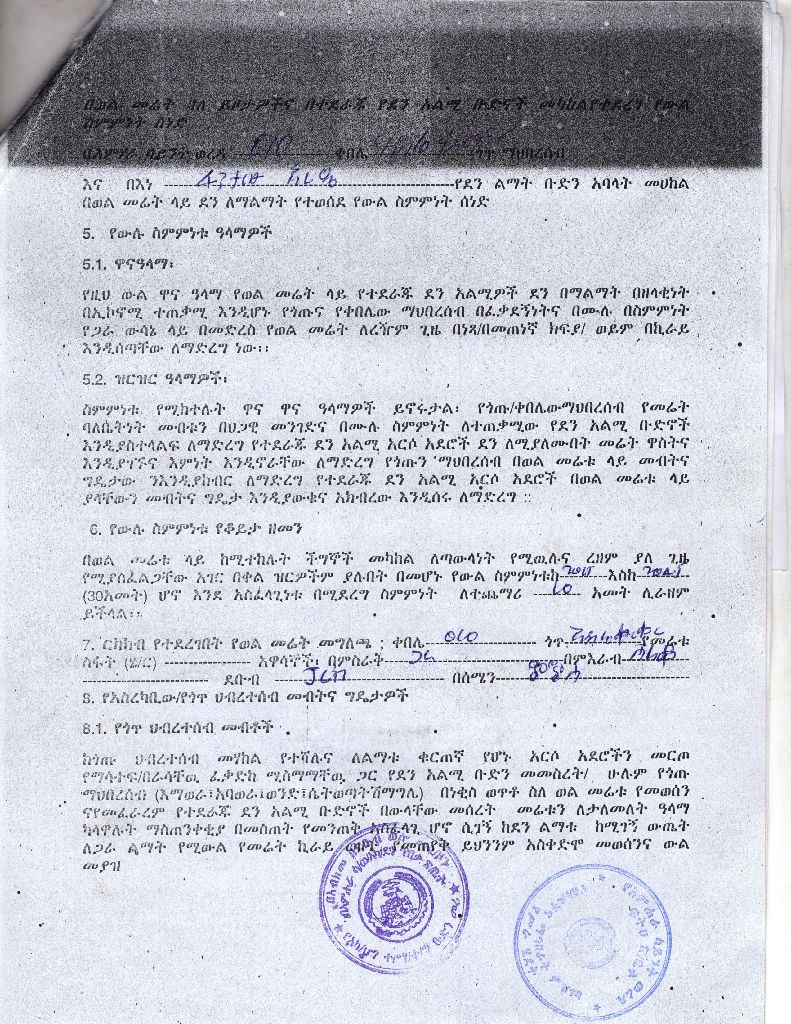 በወል መሬት ባለ ይዞታዎችና በተደራጁ የደን አልሚ ቡድኖች መካከል የተደረገ የውል
ስምምነት ሰነድ
ቀበሌ ጎጥ ማህበረሰብ
እና በእነ የደን ልማት ቡድን አባላት መሀከል
በወል መሬት ላይ ደን ለማልማት የተወሰደ የውል ስምምነት ሰነድ
5. የውሉ ስምምነቱ ዓላማዎች
5.1. ዋናዓላማ፡
የዚህ ውል ዋና ዓላማ የወል መሬት ላይ የተደራጁ ደን አልሚዎች ደን በማልማት በዘላቂነት
በኢኮኖሚ ተጠቃሚ እንዲሆኑ የጎጡና የቀበሌው ማህበረሰብ በፈቃደኝነትና በሙሉ በስምምነት
የጋራ ውሳኔ ላይ በመድረስ የወል መሬት ለረዥም ጊዜ በነጻ/በመጠነኛ ክፍያ/ ወይም በኪራይ
እንዲሰጣቸው ለማድረግ ነው፡፡
5.2. ዝርዝር ዓላማዎች፡
ስምምነቱ የሚከተሉት ዋና ዋና ዓላማዎች ይኖሩታል፡ የጎጡ/ቀበሌውማህበረሰብ የመሬት
ባለቤትነት መብቱን በህጋዊ መንገድና በሙሉ ስምምነት ለተጠቃሚው የደን አልሚ ቡድኖች
እንዲያስተላልፍ ለማድረግ የተደራጁ ደን አልሚ አርሶ አደሮች ደን ለሚያለሙበት መሬት ዋስትና
እንዲያገኙና እምነት እንዲኖራቸው ለማድረግ የጎጡን ማህበረሰብ በወል መሬቱ ላይ መብትና
ግዴታው ንእንዲያከብር ለማድረግ የተደራጁ ደን አልሚ አርሶ አደሮች በወል መሬቱ ላይ
ያላቸውን መብትና ግዴታ እንዲያውቁና አክብረው እንዲሰሩ ለማድረግ ::
6. የውሉ ስምምነቱ የቆይታ ዘመን
በወል መሬቱ ላይ ከሚተከሉት ችግኞች መካከል ለጣውላነት የሚዉሉና ረዘም ያለ ጊዜ
የሚያስፈልጋቸው አገር በቀል ዝርዎችም ያሉበት በመሆኑ የውል ስምምነቱከ እስከ
(30አመት) ሆኖ እንደ አስፈላጊነቱ በሚደረግ ስምምነት ለተጨማሪ 10 አመት ሊራዘም
ይችላል፡፡
7. ርክክብ የተደረገበት የወል መሬት መግለጫ ; ቀበሌ ጎጥ የመሬቱ
ስፋት (ሄ/ር) አዋሳኞች፡ በምስራቅ በምእራብ
ደቡብ በሰሜን
8. የአስረካቢው/የጎጥ ህብረተሰብ መብትና ግዴታዎች
8.1. የጎጥ ህብረተሰብ መብቶች
ከጎጡ ሀብረተሰብ መሃከል የተሻሉና ለልማቱ ቁርጠኛ የሆኑ አርሶ አደሮችን መርጦ
የማሳተፍ/በራሳቸዉ ፈቃድከ ሚስማማቸዉ ጋር የደን አልሚ ቡድን መመስረት/ ሁሉም የጎጡ
ማህበረሰብ (እማወራ፤አባወራ፤ወንድ፤ሴትወጣትሽማግሌ) በነቂስ ወጥቶ ስለ ወል መሬቱ የመወሰን
ናየመፈራረም የተደራጁ ደን አልሚ ቡድኖች በውላቸው መሰረት መሬቱን ለታለመለት ዓላማ
ካላዋሉት ማስጠንቀቂያ በመስጠት የመንጠቅ አስፈላጊ ሆኖ ሲገኝ ከደን ልማቱ ከሚገኝ ውጤት
ለጋራ ልማት የሚውል የመሬት ኪራይ ወጭ የመጠየቅ ይህንንም አስቀድሞ መወሰንና ውል
መያዝ